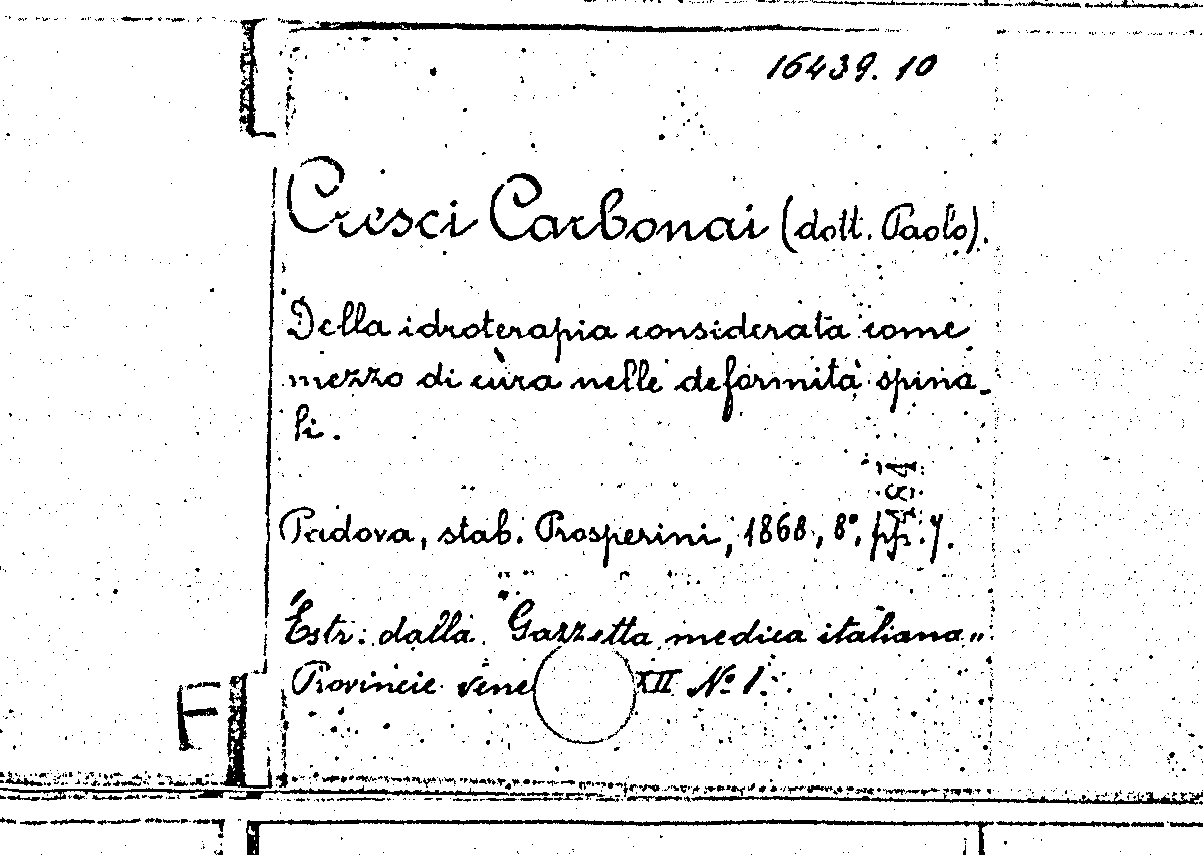 16439. 10
Cresci Carbonai (dott. Paolo).
Della idroterapia considerata come
mezzo di cura nelle deformità spina-
li.
Padova, stab. Prosperini, 1868, 8°, pp. 7.
184
Estr: dalla "Gazzetta medica italiana„
Provincie vene XII N.° 1.
F